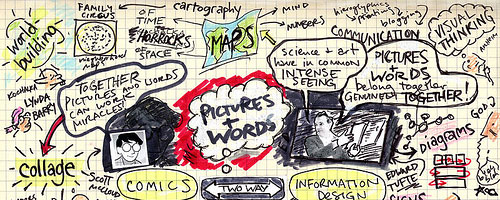 world-
building
FAMILY
CIRCUS
OF TIME
OF
SPACE
cartography
MAPS
MIND
NUMBERS
hieroglyphics
blogging
COMMUNICATION
VISUAL
THINKING
LYNDA
BARRY
TOGETHER
PICTURES AND WORDS
CAN WORK
MIRACLES!
PICTURES
+
WORDS
Science + art
have in common
INTENSE
SEEING
PICTURES
+
WORDS
belong together
GENUINELY TOGETHER!
collage
SCOTT
McCLOUD
COMICS
TWO WAY
INFORMATION
DESIGN
EDWARD
TUFTE
diagrams
SIGNS